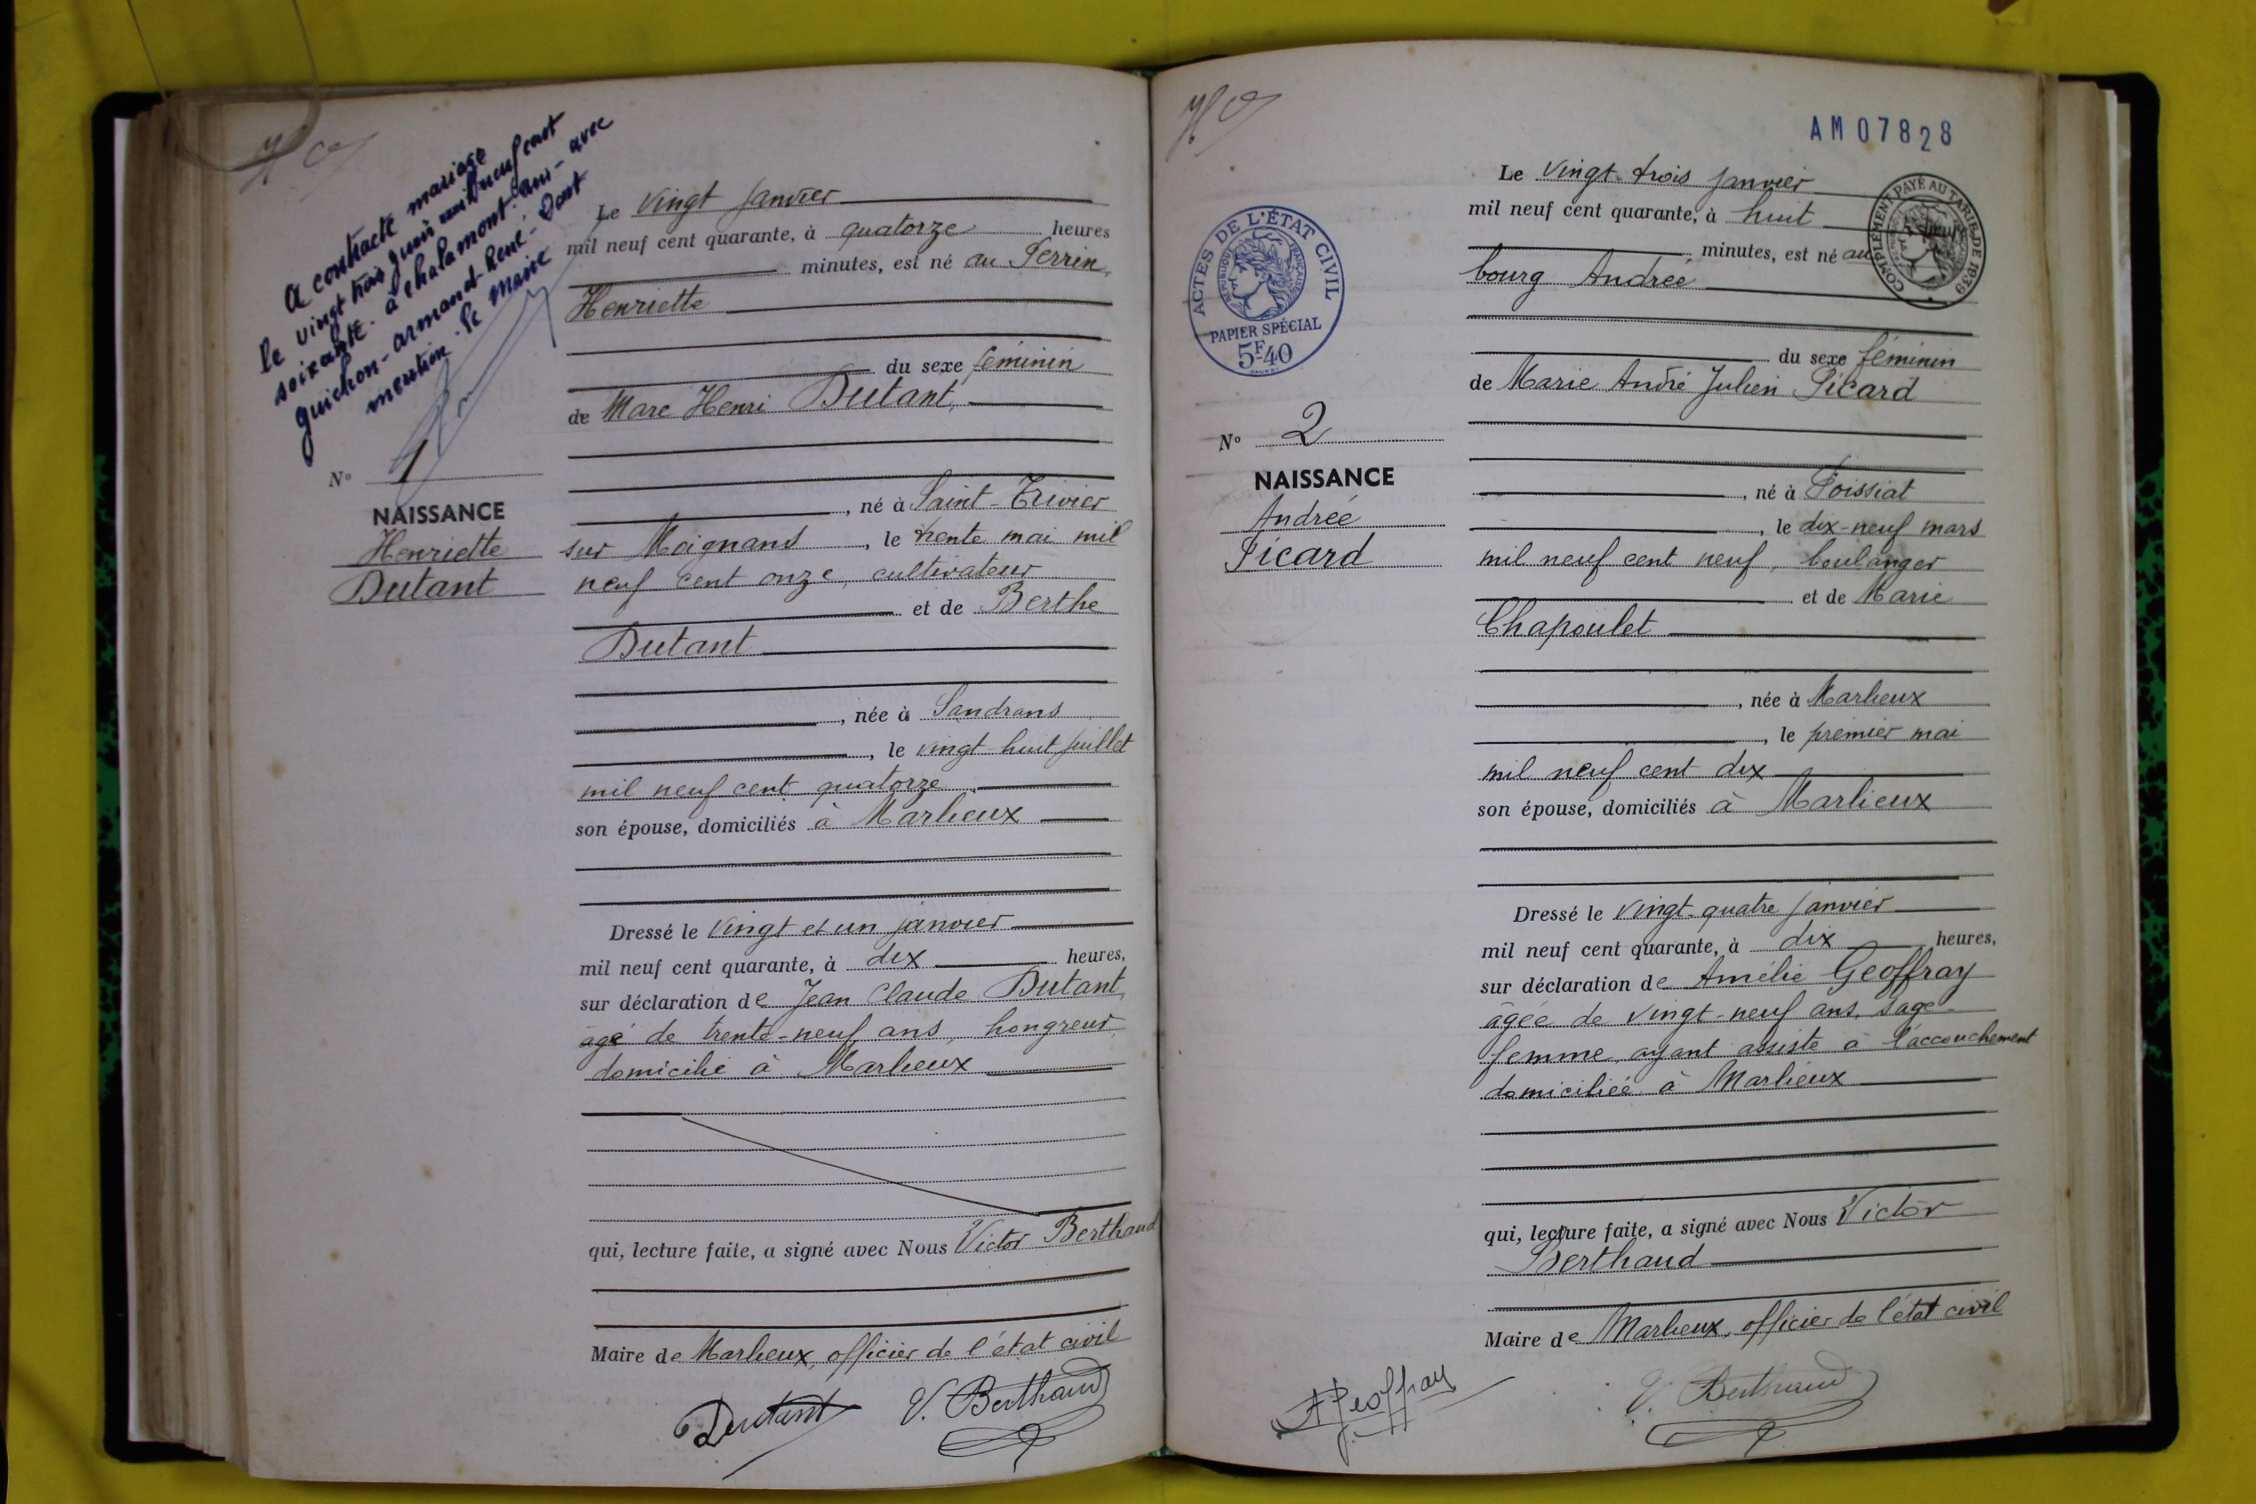 a contracté mariage
le vingt trois juin mil neuf cent
soixante à chalamont-ain-avec
guichon-armand-René-Dont
mention le maire
N° 1
NAISSANCE
Henriette
Dutant
Le vingt janvier
mil neuf cent quarante, à quatorze heures
minutes, est né au Perrin,
Henriette
du sexe féminin
de Marc Henri Dutant,
, né à Saint-Trivier
sur Moignans , le trente mai mil
neuf cent onze, cultivateur
et de Berthe
Dutant
, née à Sandrans
, le vingt huit juillet
mil neuf cent quatorze
son épouse, domiciliés à Marlieux
Dressé le vingt et un janvier
mil neuf cent quarante, à dix heures,
sur déclaration de Jean Claude Dutant,
âgé de trente-neuf ans, hongreur
domicilié à Marlieux
qui, lecture faite, a signé avec Nous Victor Berthaud
Maire de Marlieux, officier de l'état civil
Dutant V. Berthaud
AM07828
ACTES DE L'ÉTAT CIVIL
PAPIER SPÉCIAL
5F40
COMPLÉMENT PAYÉ AU TARIF DE 1939
N° 2
NAISSANCE
Andrée
Picard
Le vingt-trois janvier
mil neuf cent quarante, à huit
minutes, est né au
bourg Andrée
du sexe féminin
de Marie André Julien Picard
, né à Foissiat
, le dix-neuf mars
mil neuf cent neuf, boulanger
et de Marie
Chapoulet
, née à Marlieux
, le premier mai
mil neuf cent dix
son épouse, domiciliés à Marlieux
Dressé le vingt-quatre janvier
mil neuf cent quarante, à dix heures,
sur déclaration de Amélie Geoffray
âgée de vingt-neuf ans, sage-
femme, ayant assisté à l'accouchement
domiciliée à Marlieux
qui, lecture faite, a signé avec Nous Victor
Berthaud
Maire de Marlieux, officier de l'état civil
A Geoffray V. Berthaud